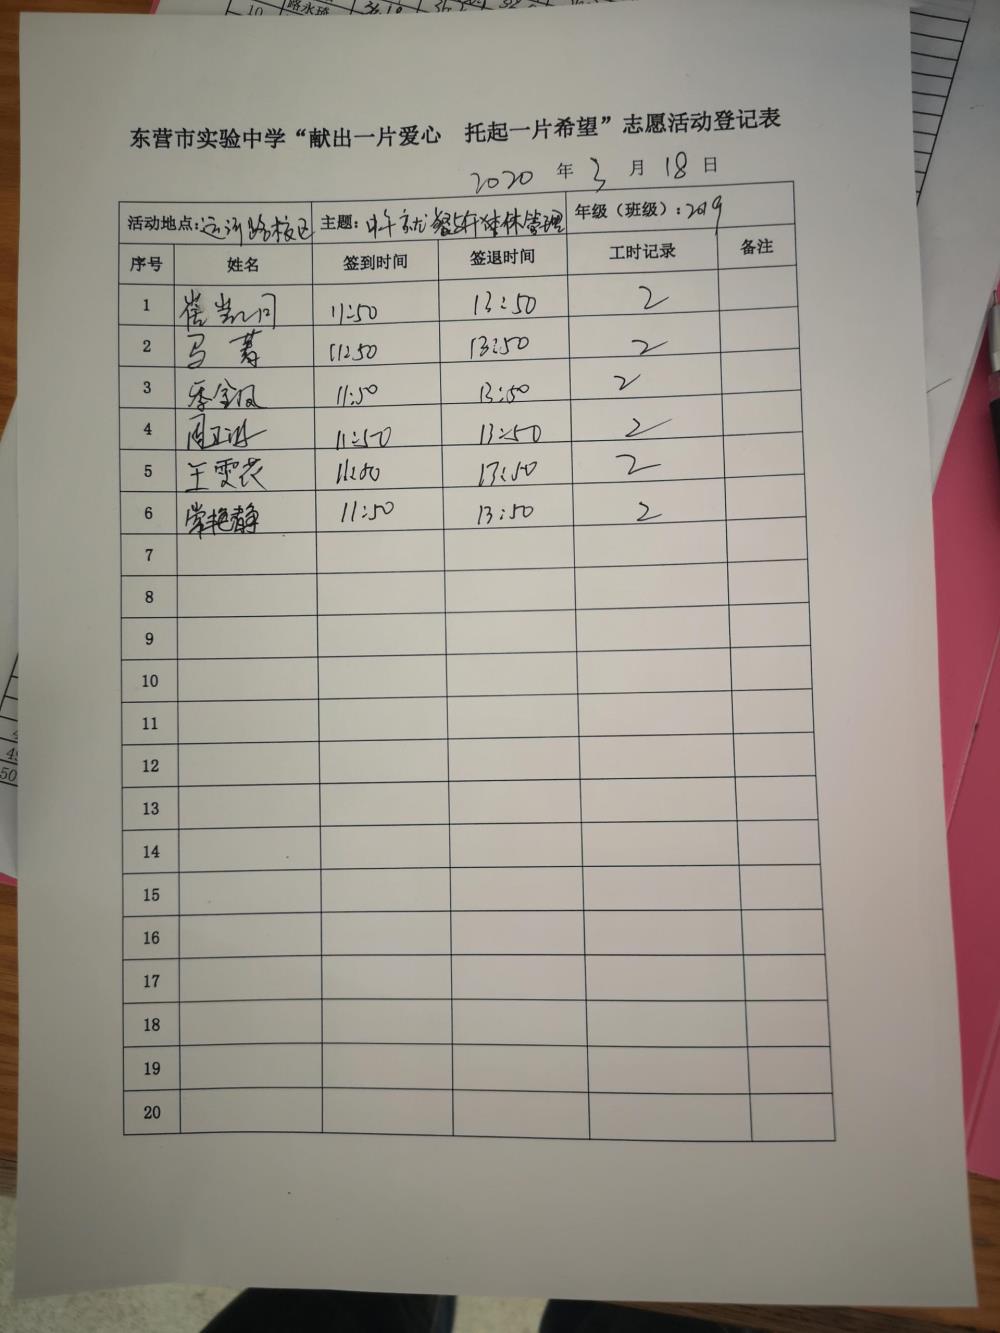 10 骆永琦
东营市实验中学“献出一片爱心 托起一片希望”志愿活动登记表
2020 年 3 月 18 日
活动地点:运河路校区 主题:中午就餐午休管理 年级(班级):2019
序号 姓名 签到时间 签退时间 工时记录 备注
1 崔 11:50 13:50 2
2 马 11:50 13:50 2
3 季金凤 11:50 13:50 2
4 周 11:50 13:50 2
5 王雯花 11:50 13:50 2
6 常艳静 11:50 13:50 2
7
8
9
10
11
12
13
14
15
16
17
18
19
20
49
50